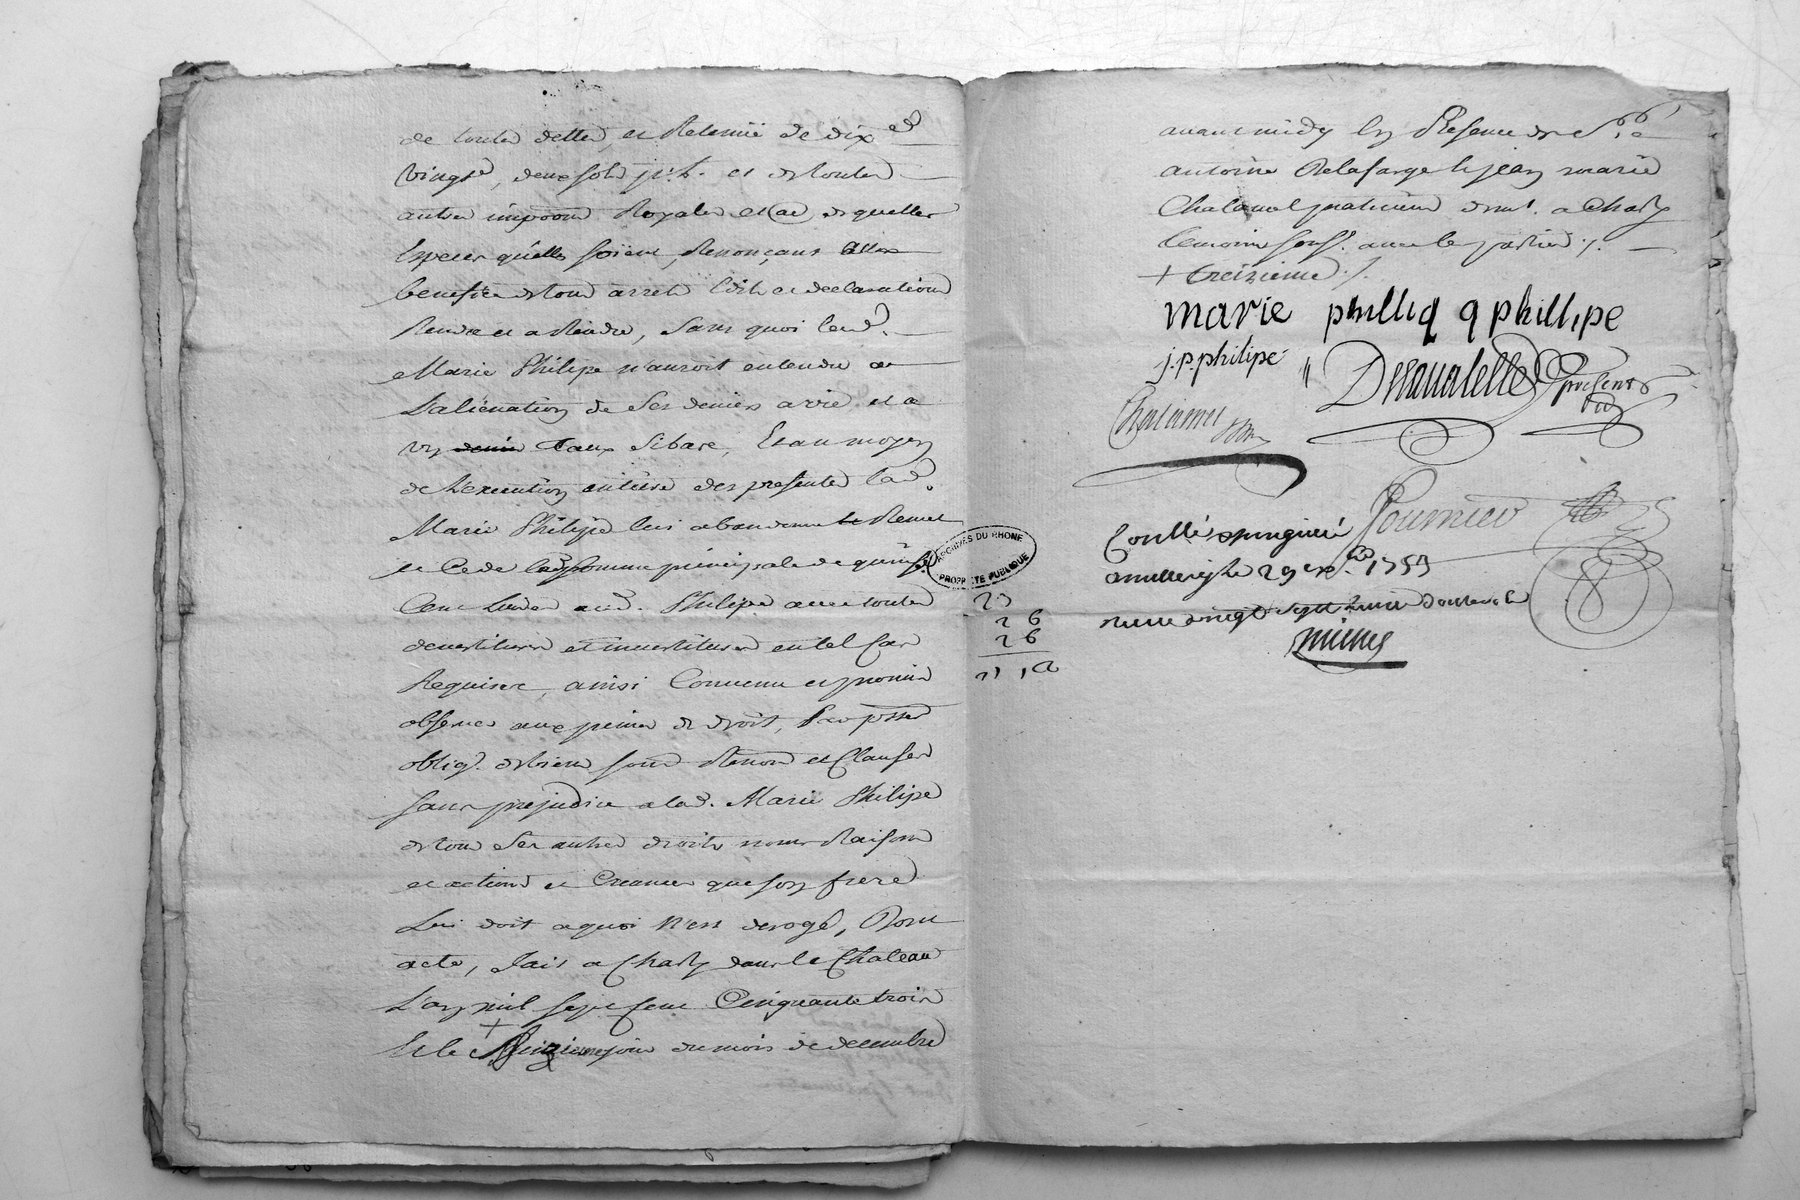 de toutes dettes, et Retenüe de dix et
Vingt.e, deux sols p.r L. et de toutes
autres impoons Royales et ce de quelles
Especes qu'elles soient, Renonçant aux
benefice de tous arrets Edits et declarations
Rendus et a Rendre, sans quoi lad.
Marie Philipe n'auroit entendu a
L'alienation de ses deniers a vie et a
un taux si bas, Et au moyen
de L'execution entiere des presentes lad.
Marie Philipe lui abandonne Remet
et Cede somme principale de quinse
Cent Livres aud. Philipe avec toutes
devestitures et investitures en tel cas
Requises, ainsi Convenu et promis
observer aux peines de droit, Par
oblig. de biens soum Renon et Clauses
sans prejudice a lad. Marie Philipe
de tous ses autres droits noms Raisons
et actions et Creances que son frere
Lui doit a quoi n'est derogé, Dont
acte, fait a Charly dans le Chateau
L'an mil sept cent Cinquante trois
Et le jour du mois de decembre
avant midy En Presence de S.rs
antoine Delafarge et jean marie
Chalamel praticiens dem.t a Charly
temoins sous.s avec les parties ./.
+ treizieme ./.
marie phillip q phillipe
j.p.philipe
Chalamel
Fournier
ARCHIVES DU RHONE
PROPRIETE PUBLIQUE
2 6
2 6
Conllé
a millery le 29 x.bre 1753